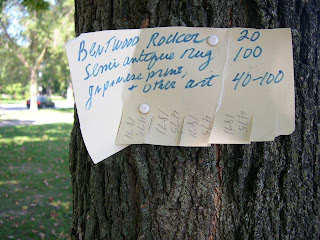 Bentwood Rocker 20
Semi antique rug 100
Japanese print,
+ other art 40-100